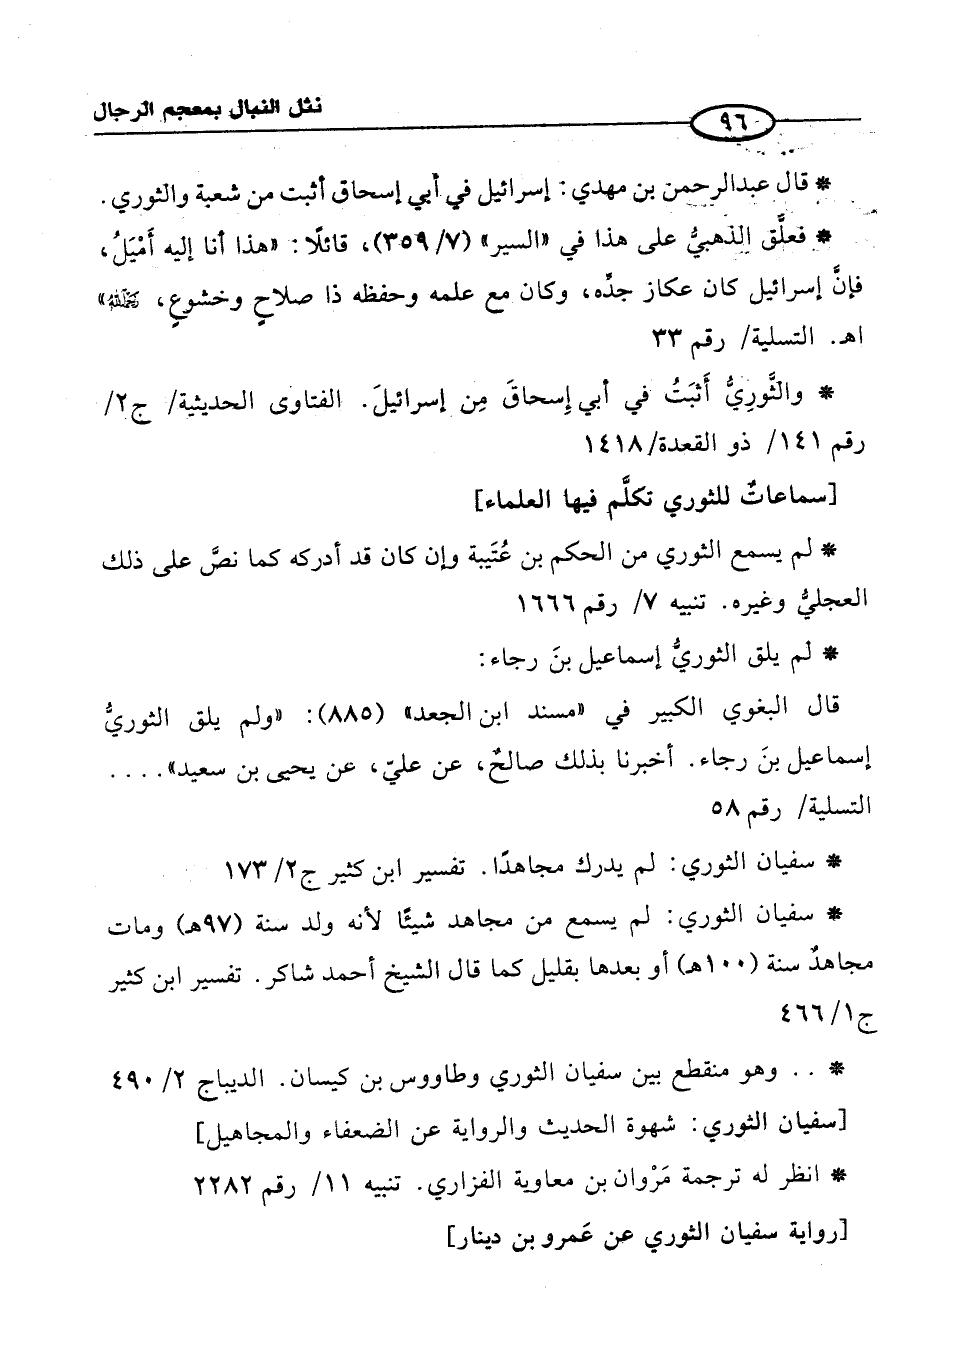 نثل النبال بمعجم الرجال
٩٦
* قال عبدالرحمن بن مهدي: إسرائيل في أبي إسحاق أثبت من شعبة والثوري.
* فعلَّق الذهبيُّ على هذا في «السير» (٧/ ٣٥٩)، قائلًا: «هذا أنا إليه أَمْيَلُ،
فإنَّ إسرائيل كان عكاز جدِّه، وكان مع علمه وحفظه ذا صلاحٍ وخشوعٍ، رحمه الله»
اهـ. التسلية/ رقم ٣٣
* والثَّوريُّ أَثبَتُ في أبي إسحاقَ مِن إسرائيلَ. الفتاوى الحديثية/ ج٢/
رقم ١٤١/ ذو القعدة/ ١٤١٨
[سماعاتٌ للثوري تكلَّم فيها العلماء]
* لم يسمع الثوري من الحكم بن عُتَيبة وإن كان قد أدركه كما نصَّ على ذلك
العجليُّ وغيره. تنبيه ٧/ رقم ١٦٦٦
* لم يلق الثوريُّ إسماعيل بنَ رجاء:
قال البغوي الكبير في «مسند ابن الجعد» (٨٨٥): «ولم يلق الثوريُّ
إسماعيل بنَ رجاء. أخبرنا بذلك صالحٌ، عن عليّ، عن يحيى بن سعيد»....
التسلية/ رقم ٥٨
* سفيان الثوري: لم يدرك مجاهدًا. تفسير ابن كثير ج٢/ ١٧٣
* سفيان الثوري: لم يسمع من مجاهد شيئًا لأنه ولد سنة (٩٧هـ) ومات
مجاهدٌ سنة (١٠٠هـ) أو بعدها بقليل كما قال الشيخ أحمد شاكر. تفسير ابن كثير
ج١/ ٤٦٦
* .. وهو منقطع بين سفيان الثوري وطاووس بن كيسان. الديباج ٢/ ٤٩٠
[سفيان الثوري: شهوة الحديث والرواية عن الضعفاء والمجاهيل]
* انظر له ترجمة مَرْوان بن معاوية الفزاري. تنبيه ١١/ رقم ٢٢٨٢
[رواية سفيان الثوري عن عَمرو بن دينار]